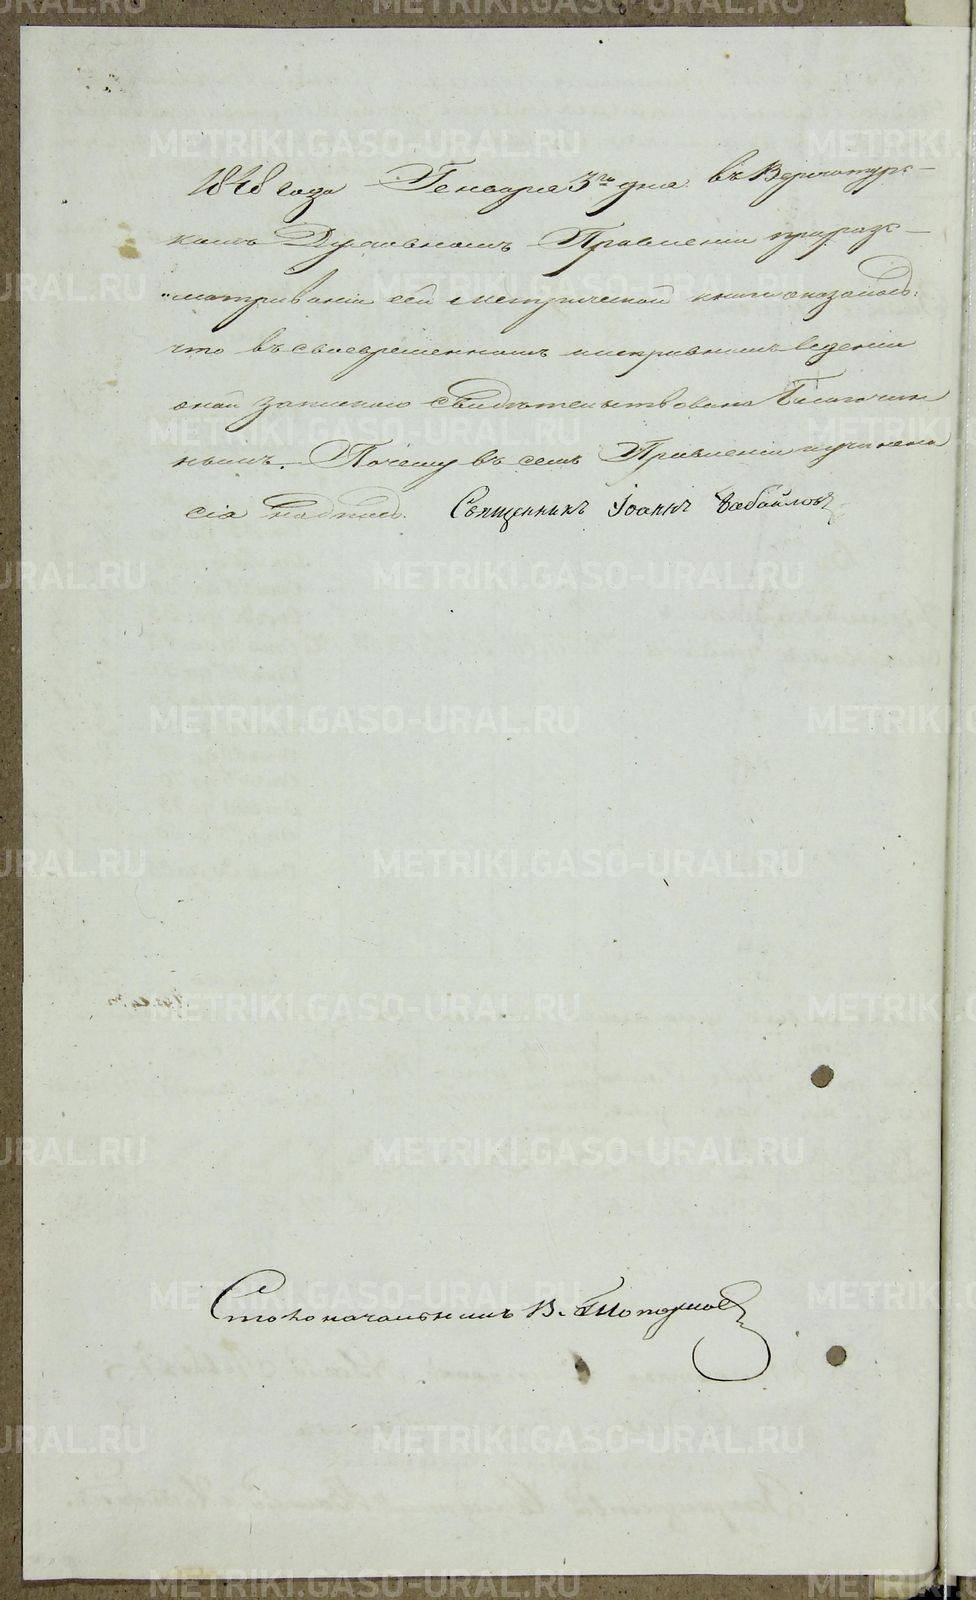 1848 года Генваря 3го дня въ Верхотурс-
комъ Духовномъ Правленіи прираз-
"матриваніи сей метрической книги оказалось:
что въ своевременномъ и исправномъ веденіи
оной запискою свидѣтельствована Благочин
нымъ. Почему въ семъ Правленіи и учинена
сіа надпись. Священникъ Іоаннъ
Столоначальникъ В.
METRIKI.GASO-URAL.RU